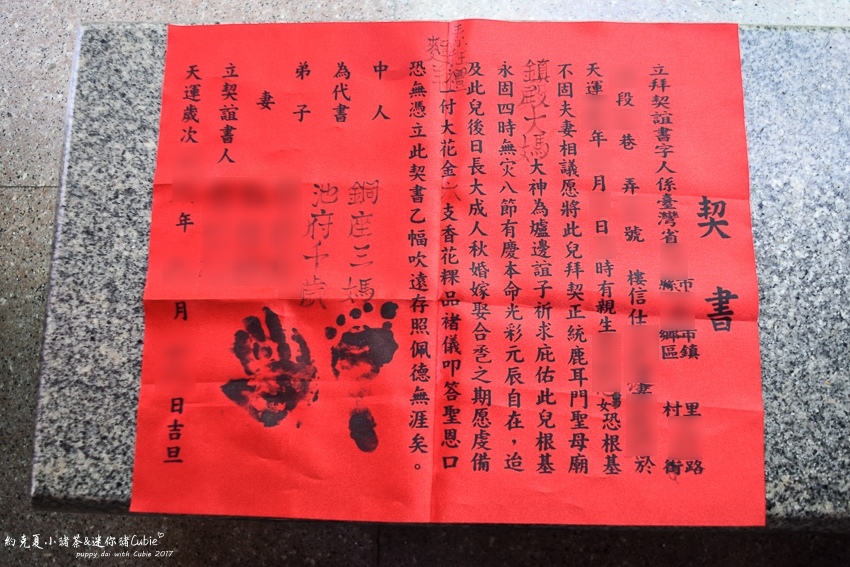 契書
立拜契誼書字人係臺灣省 縣市 鄉鎮市區 村里 街路
段 巷 弄 號 樓信仕 妻 於
天運 年 月 日 時有親生 男女恐根基
不固夫妻相議愿將此兒拜契正統鹿耳門聖母廟
鎮殿大媽大神為爐邊誼子祈求庇佑此兒根基
永固四時無灾八節有慶本命光彩元辰自在，迨
及此兒後日長大成人秋婚嫁娶合巹之期愿虔備
一付大花金 支香花粿品褚儀叩答聖恩口
恐無憑立此契書乙幅吹遠存照佩德無涯矣。
中人 銅座三媽
為代書 池府千歲
弟子
妻
立契誼書人
天運歲次 年 月 日吉旦
約克夏小諸茶&迷你豬Cubie
puppy dai with Cubie 2017